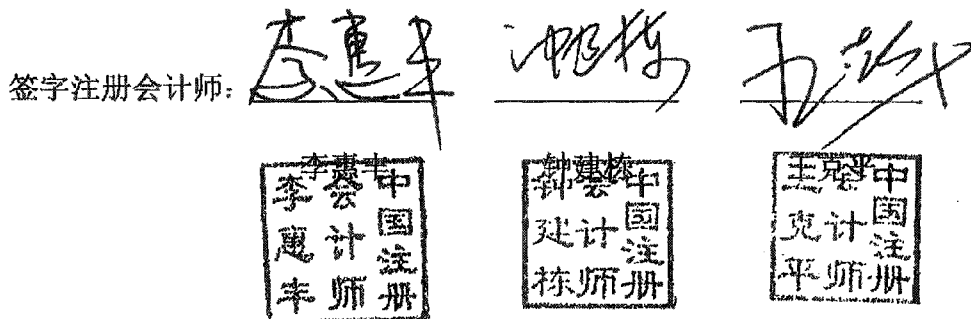 签字注册会计师:
李惠丰 钟建栋 王克平
中国注册会计师李惠丰
中国注册会计师钟建栋
中国注册会计师王克平